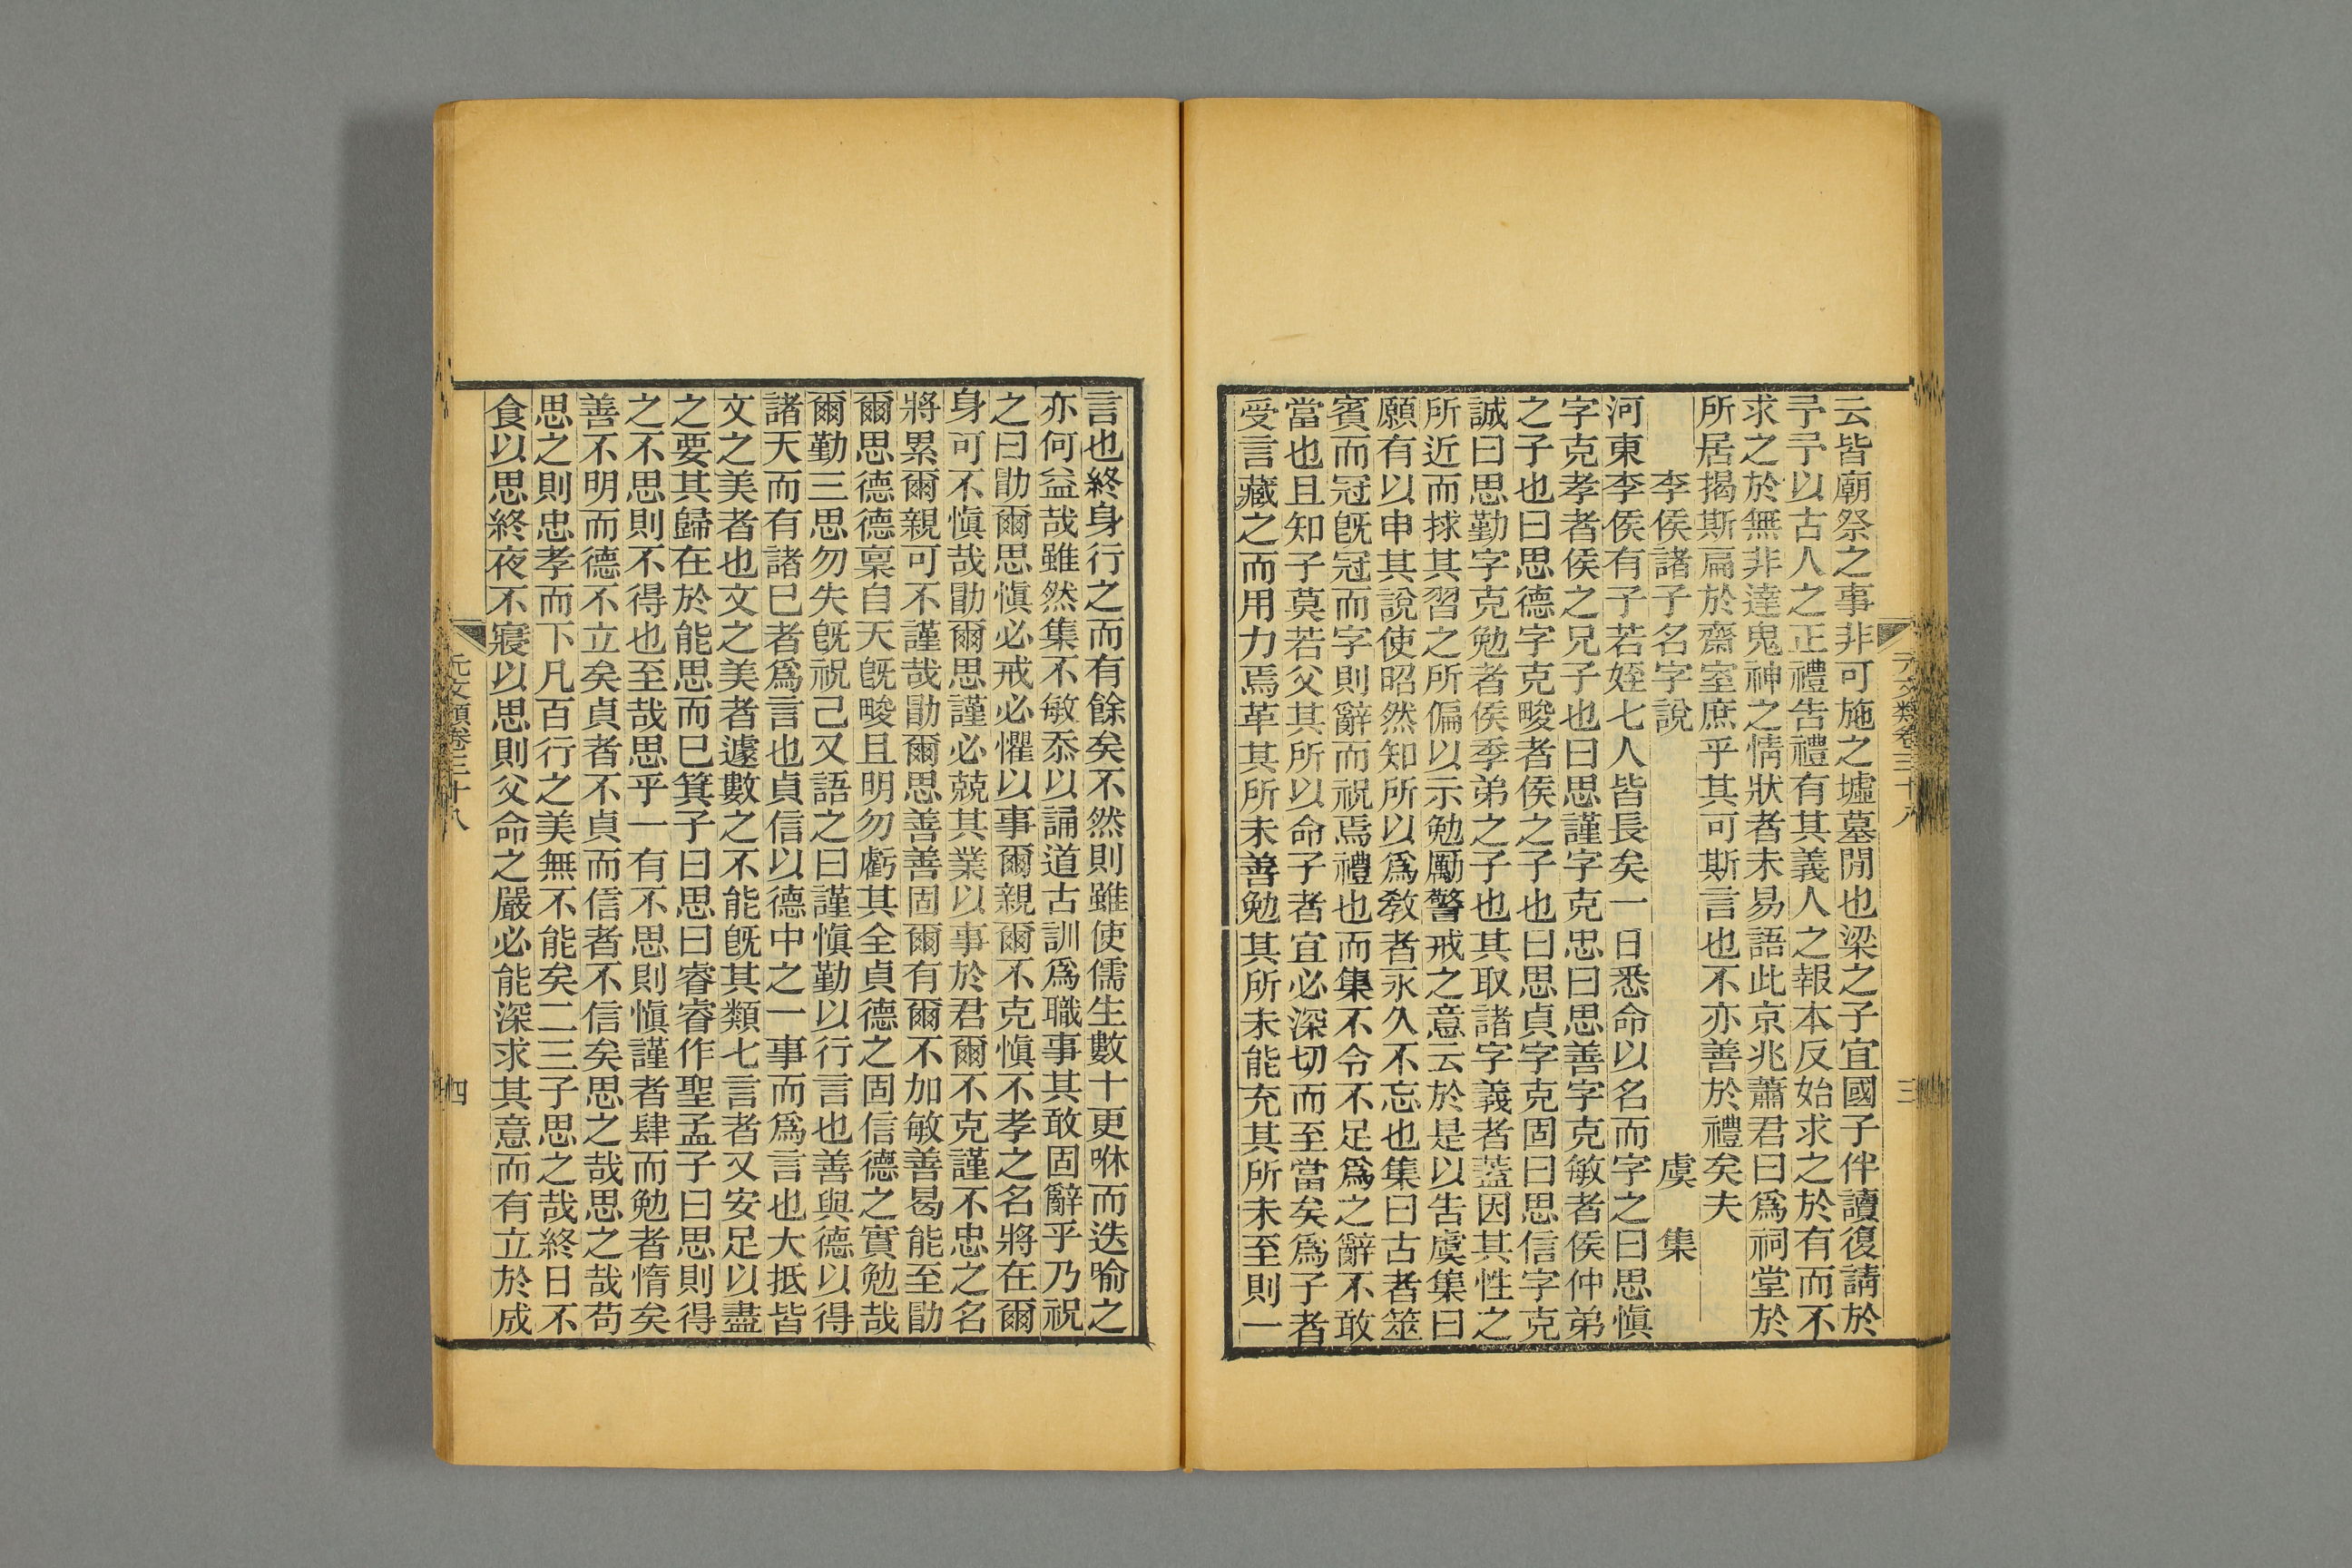 云皆廟祭之事非可施之墟墓閒也梁之子宜國子伴讀復請於
予予以古人之正禮告禮有其義人之報本反始求之於有而不
求之於無非達鬼神之情狀者未易語此京兆蕭君曰爲祠堂於
所居揭斯扁於齋室庶乎其可斯言也不亦善於禮矣夫
李侯諸子名字說 虞集
河東李侯有子若姪七人皆長矣一日悉命以名而字之曰思愼
字克孝者侯之兄子也曰思謹字克忠曰思善字克敏者侯仲弟
之子也曰思德字克畯者侯之子也曰思貞字克固曰思信字克
誠曰思勤字克勉者侯季弟之子也其取諸字義者蓋因其性之
所近而捄其習之所偏以示勉勵警戒之意云於是以告虞集曰
願有以申其說使昭然知所以爲敎者永久不忘也集曰古者筮
賓而冠旣冠而字則辭而祝焉禮也而集不令不足爲之辭不敢
當也且知子莫若父其所以命子者宜必深切而至當矣爲子者
受言藏之而用力焉革其所未善勉其所未能充其所未至則一
元文類卷三十八 三
言也終身行之而有餘矣不然則雖使儒生數十更咻而迭喻之
亦何益哉雖然集不敏忝以誦道古訓爲職事其敢固辭乎乃祝
之曰勖爾思愼必戒必懼以事爾親爾不克愼不孝之名將在爾
身可不愼哉勖爾思謹必兢其業以事於君爾不克謹不忠之名
將累爾親可不謹哉勖爾思善善固爾有爾不加敏善曷能至勖
爾思德德稟自天旣畯且明勿虧其全貞德之固信德之實勉哉
爾勤三思勿失旣祝己又語之曰謹愼勤以行言也善與德以得
諸天而有諸巳者爲言也貞信以德中之一事而爲言也大抵皆
文之美者也文之美者遽數之不能旣其類七言者又安足以盡
之要其歸在於能思而巳箕子曰思曰睿睿作聖孟子曰思則得
之不思則不得也至哉思乎一有不思則愼謹者肆而勉者惰矣
善不明而德不立矣貞者不貞而信者不信矣思之哉思之哉苟
思之則忠孝而下凡百行之美無不能矣二三子思之哉終日不
食以思終夜不寢以思則父命之嚴必能深求其意而有立於成
元文類卷三十八 四